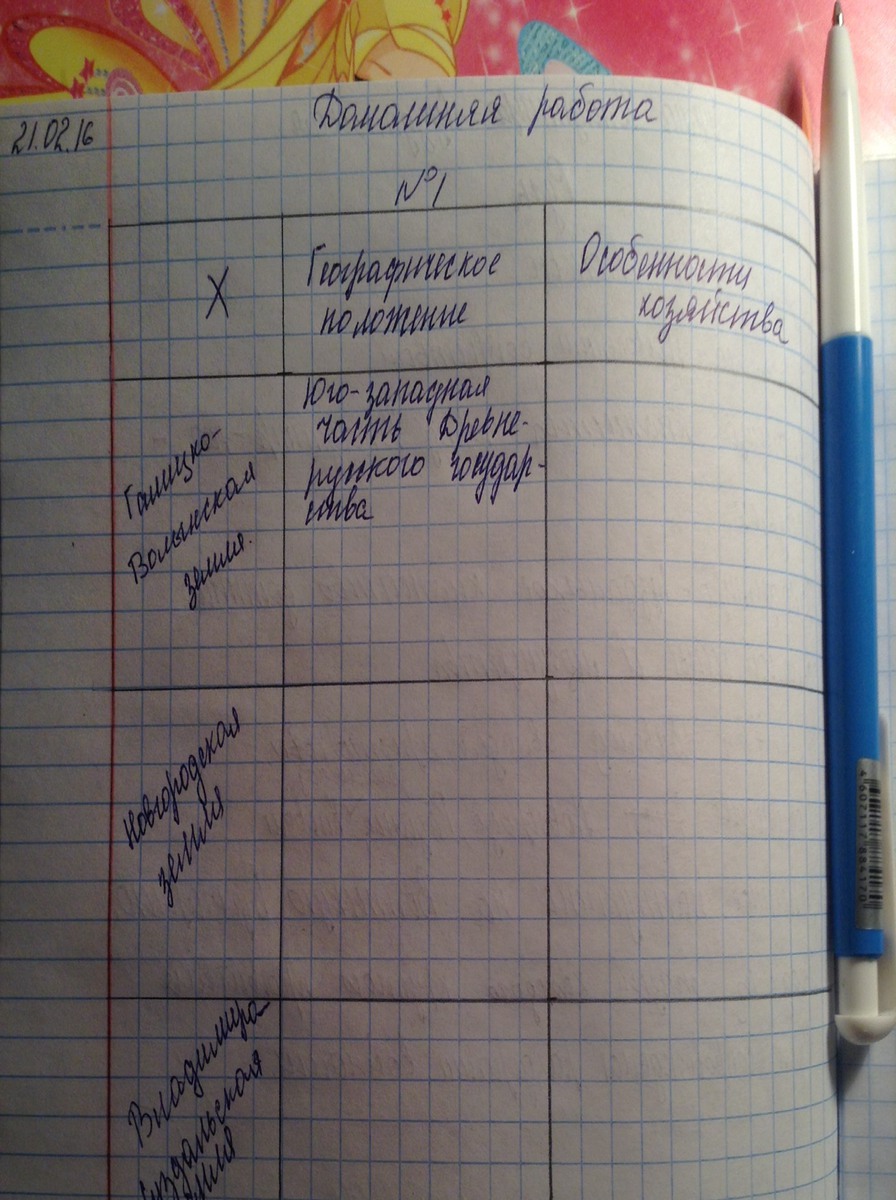 21.02.16
Домашняя работа
№1
X
Географическое
положение
Особенности
хозяйства
Галицко-
Волынская
земля.
Юго-западная
часть Древне-
русского государ-
ства
Новгородская
земля
Владимиро
Суздальская
земля
4607117884170